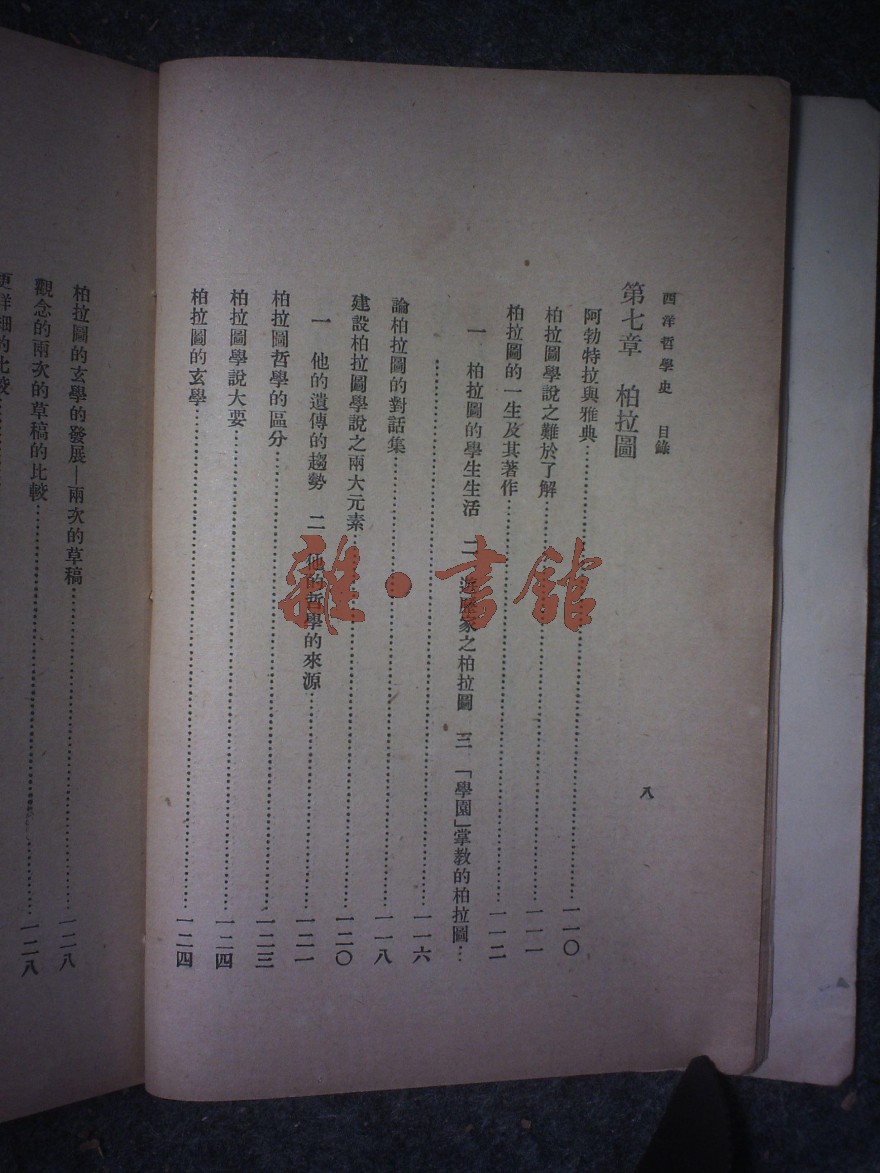 西洋哲學史 目錄
八
第七章 柏拉圖
阿勃特拉與雅典……一一〇
柏拉圖學說之難於了解……一一一
柏拉圖的一生及其著作……一一二
一 柏拉圖的學生生活 二 遊歷家之柏拉圖 三 「學園」掌教的柏拉圖…
……一一六
論柏拉圖的對話集……一一八
建設柏拉圖學說之兩大元素……一二〇
一 他的遺傳的趨勢 二 他的哲學的來源……一二一
柏拉圖哲學的區分……一二三
柏拉圖學說大要……一二四
柏拉圖的玄學……一二四
柏拉圖的玄學的發展—兩次的草稿……一二八
觀念的兩次的草稿的比較……一二八
更詳細的比較……
雜·書館